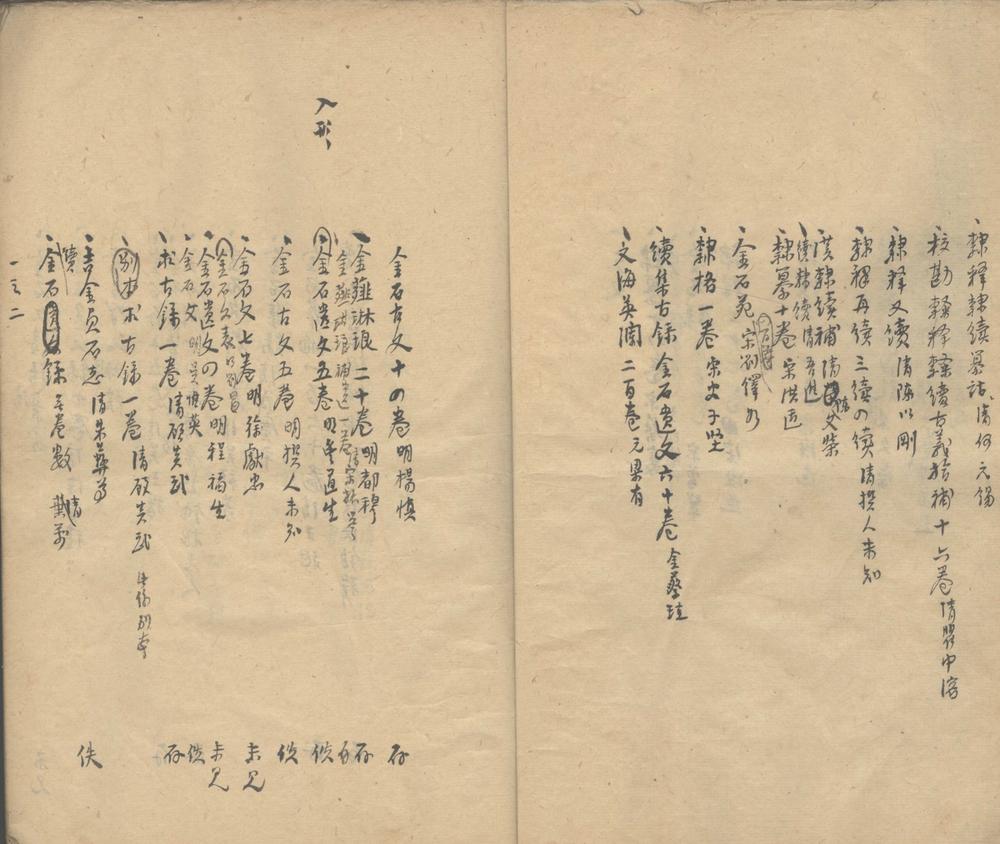 隸釋隸續纂詁 清何元錫
校勘隸釋隸續古義拾補十六卷 清瞿中溶
隸釋又續 清陳以剛
隸釋再續三續の續 清撰人未知
漢隸續補 清文柴
續隸續 清吾進
隸纂十卷 宋洪适
金石苑 宋劉
隸格一卷 宋史子堅
續集古錄金石遺文六十卷 金蔡珪
文海英瀾二百卷 元梁有
金石古文十の卷 明楊慎 存
金薤琳琅二十卷 明都穆 存
金薤琳琅補遺一卷 清宋振譽
金石遺文五卷 明豐道生 佚
入形
金石古文五卷 明撰人未知 佚
金石文七卷 明徐獻忠 未見
金石文表 明劉昌
金石遺文の卷 明程福生 未見
金石文 明吳慎英 佚
求古錄一卷 清顧炎武 存
別本求古錄一卷 清顧炎武
吉金貞石志 清朱彝尊 佚
續金石錄 無卷數 清
一三二